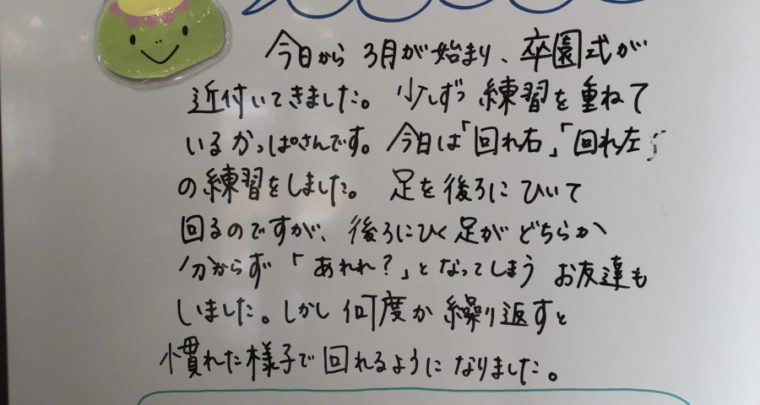 今日から 3月が始まり、卒園式が
近付いてきました。 少しずつ 練習を重ねて
いるかっぱさんです。今日は「回れ右」「回れ左」
の練習をしました。 足を後ろに ひいて
回るのですが、後ろにひく足が どちらか
分からず 「あれれ？」となってしまう お友達も
いました。しかし 何度か 繰り返すと
慣れた様子で 回れるように なりました。